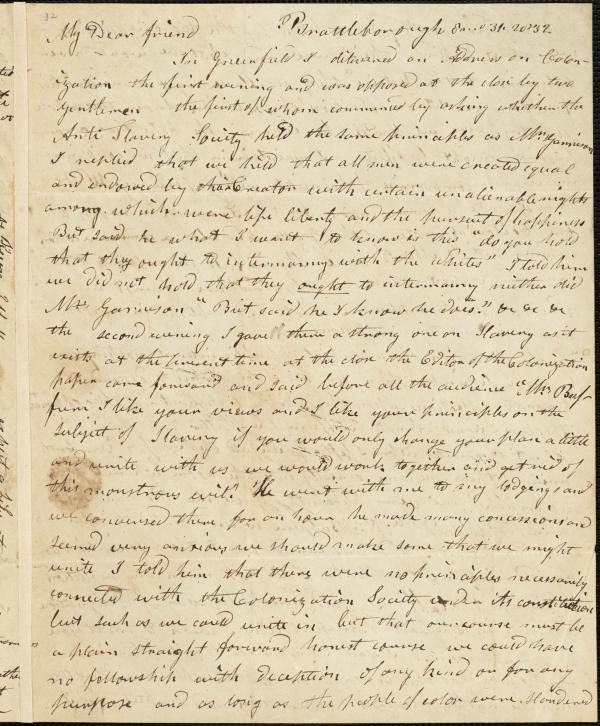 32
My Dear friend Brattleborough 8 mo 31. 1832
In Greenfield I delivered an Address on Colon-
ization the first evening and was opposed at the close by two
Gentlemen the first of whom commenced by asking whether the
Anti Slavery Society held the same principles as Mr. Garrison
I replied that we held that all men were created equal
and endowed by their Creator with certain unalienable rights
among which were life liberty and the pursuit of happiness
But said he what I want to know is this "do you hold
that they ought to intermarry with the whites" I told him
we did not hold that they ought to intermarry neither did
Mr. Garrison "But said he I know he does." &c &c &c
the second evening I gave them a strong one on Slavery as it
exists at the present time at the close the Editor of the Colonization
paper came forward and said before all the audience "Mr. Buf-
fum I like your views and I like your principles on the
subject of Slavery if you would only change your plan a little
and unite with us we would work together and get rid of
this monstrous evil." He went with me to my lodgings and
we conversed there for an hour he made many concessions and
seemed very anxious we should make some that we might
unite I told him that there were no principles necessarily
connected with the Colonization Society under its constitution
but such as we could unite in but that our course must be
a plain straight forward honest course we could have
no fellowship with deception of any kind or for any
purpose and as long as the people of color were slandered